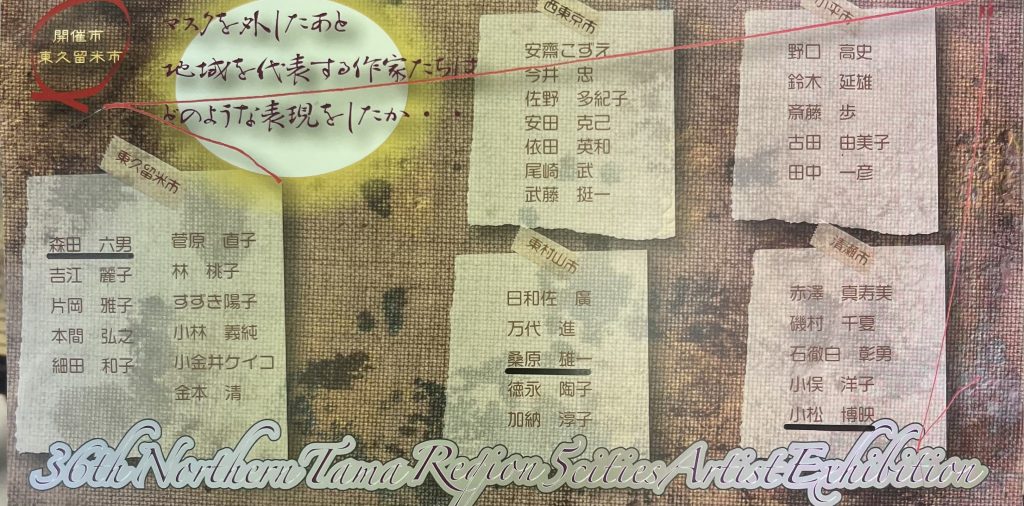 開催市
東久留米市
マスクを外したあと
地域を代表する作家たちは
どのような表現をしたか・・
東久留米市
森田 六男
吉江 麗子
片岡 雅子
本間 弘之
細田 和子
菅原 直子
林 桃子
すずき陽子
小林 義純
小金井ケイコ
金本 清
西東京市
安齋こずえ
今井 忠
佐野 多紀子
安田 克己
依田 英和
尾崎 武
武藤 挺一
小平市
野口 高史
鈴木 延雄
斎藤 歩
古田 由美子
田中 一彦
東村山市
日和佐 廣
万代 進
桑原 雄一
徳永 陶子
加納 淳子
清瀬市
赤澤 真寿美
磯村 千夏
石徹白 彰男
小俣 洋子
小松 博映
36th Northern Tama Region 5cities Artist Exhibition